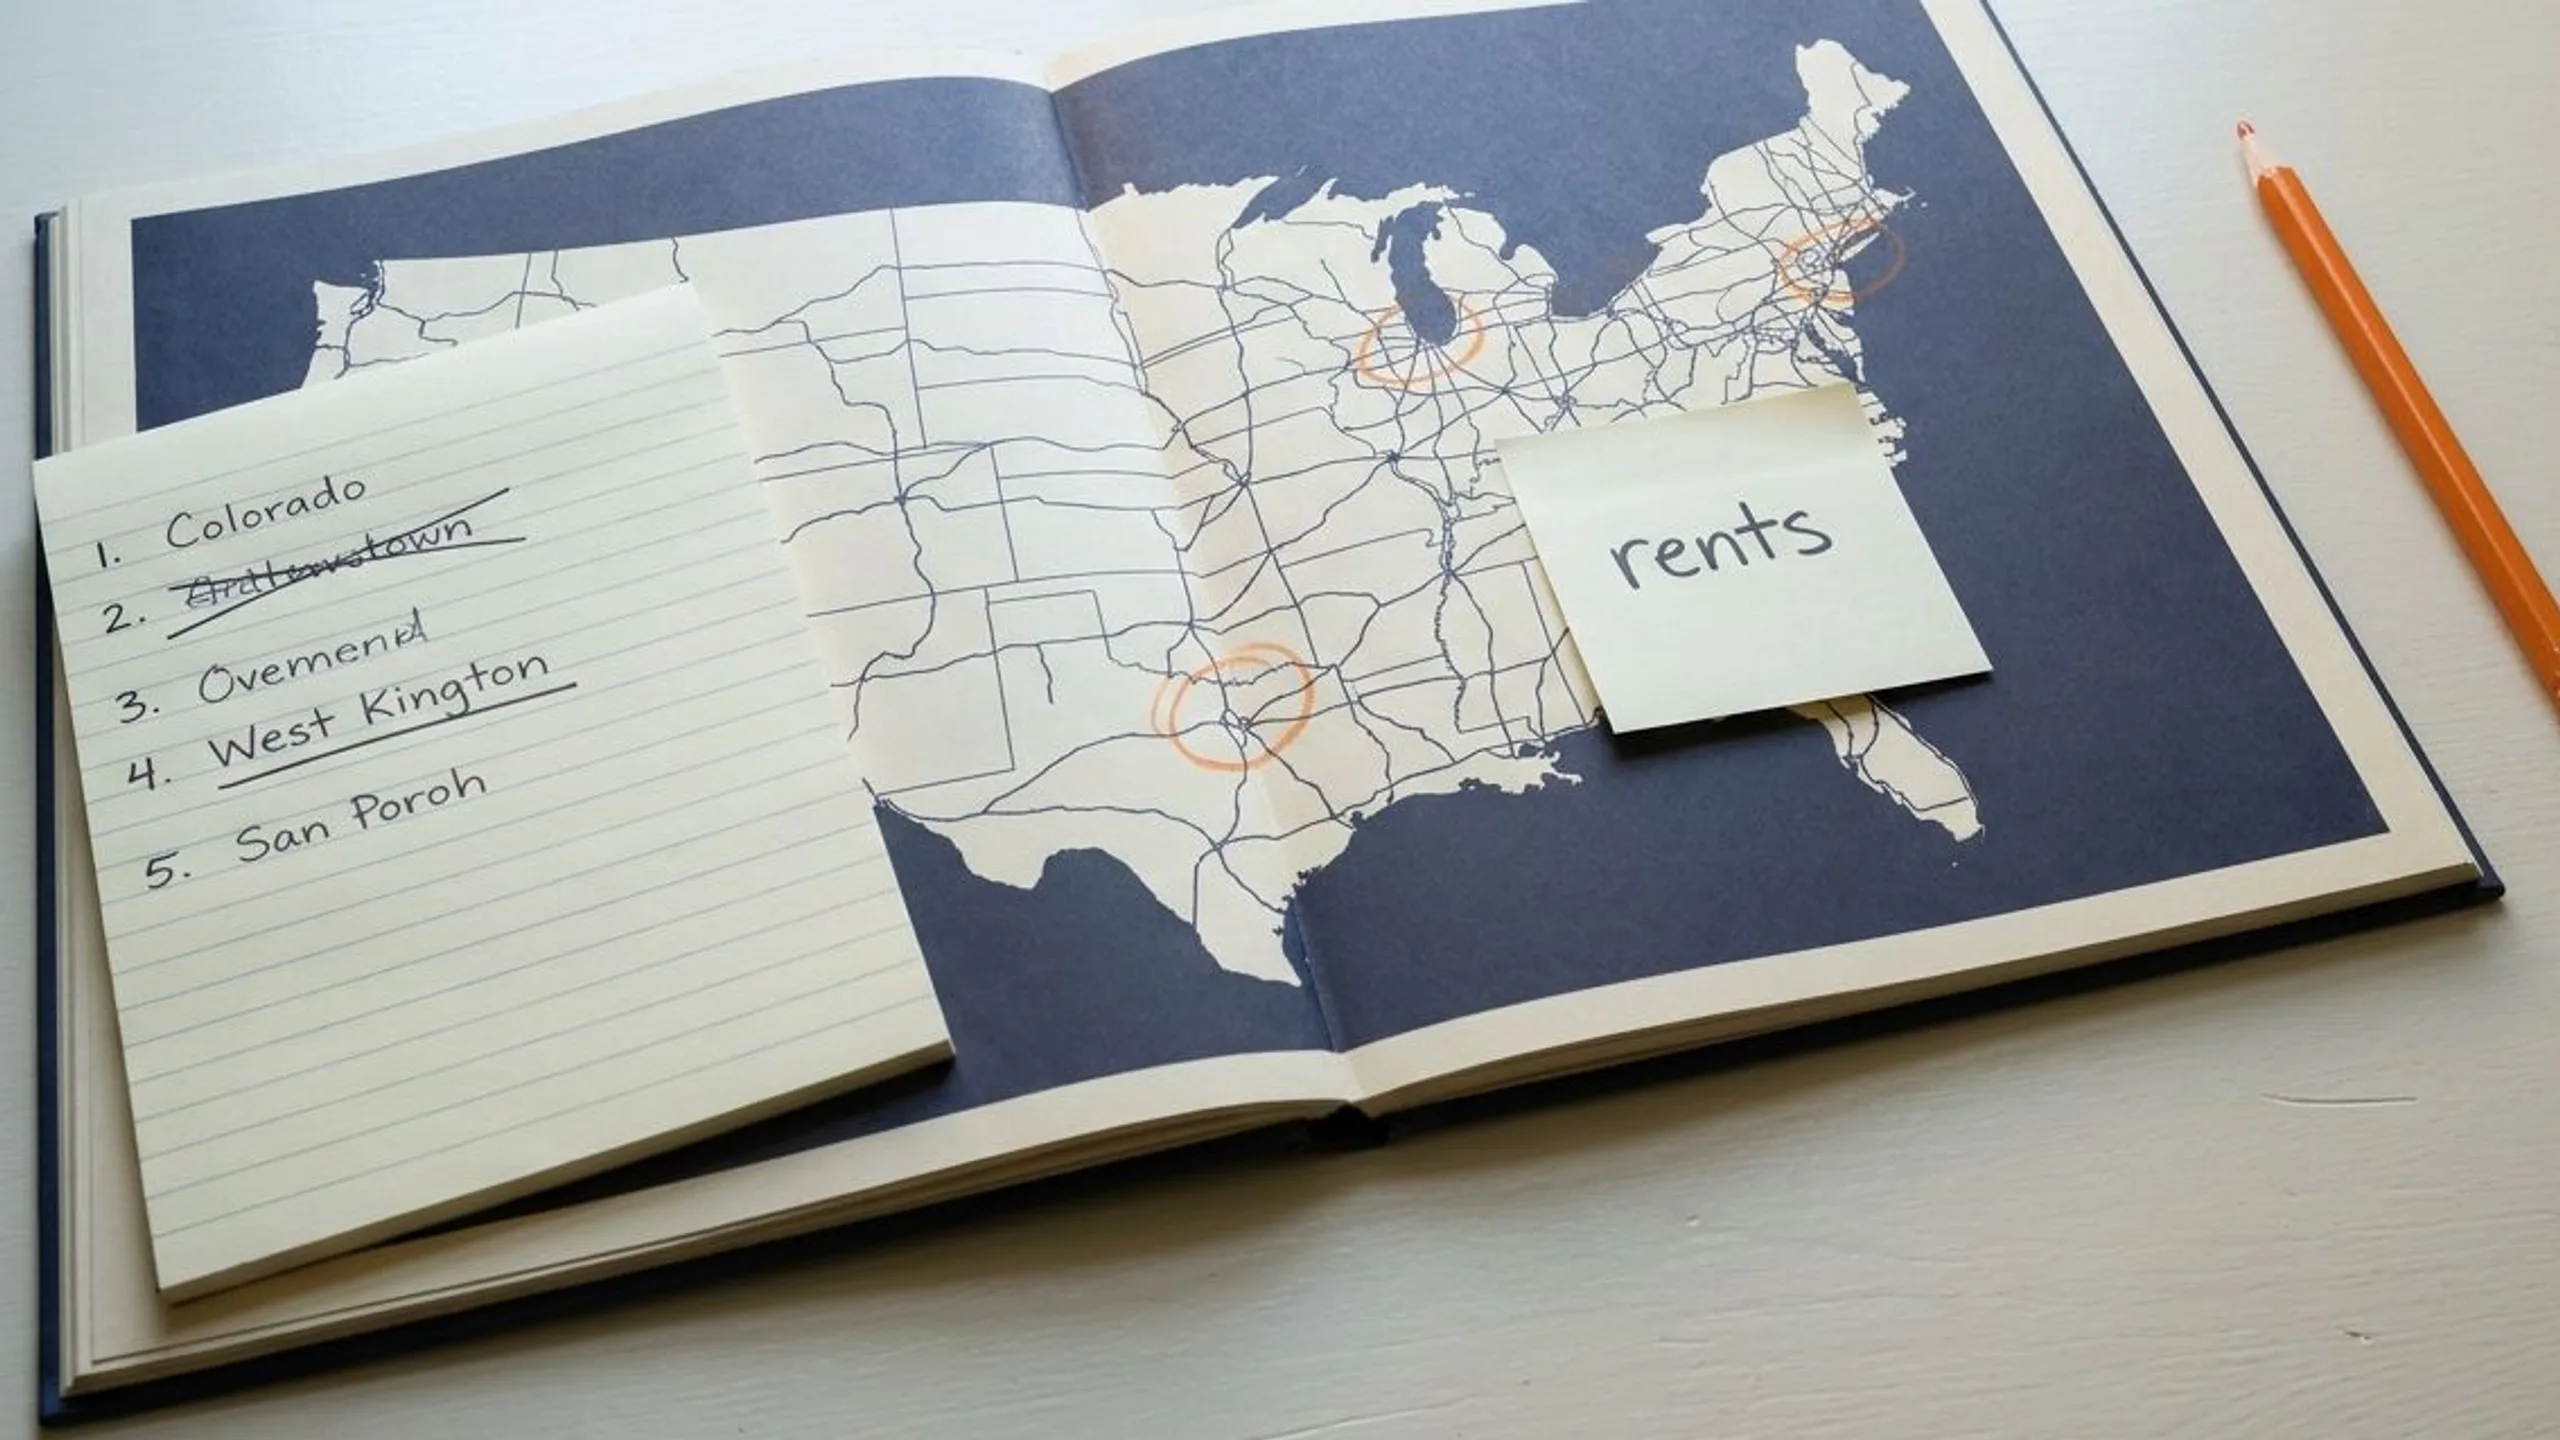 1. Colorado
2.
3. Ovemend
4. West Kington
5. San Poroh
rents